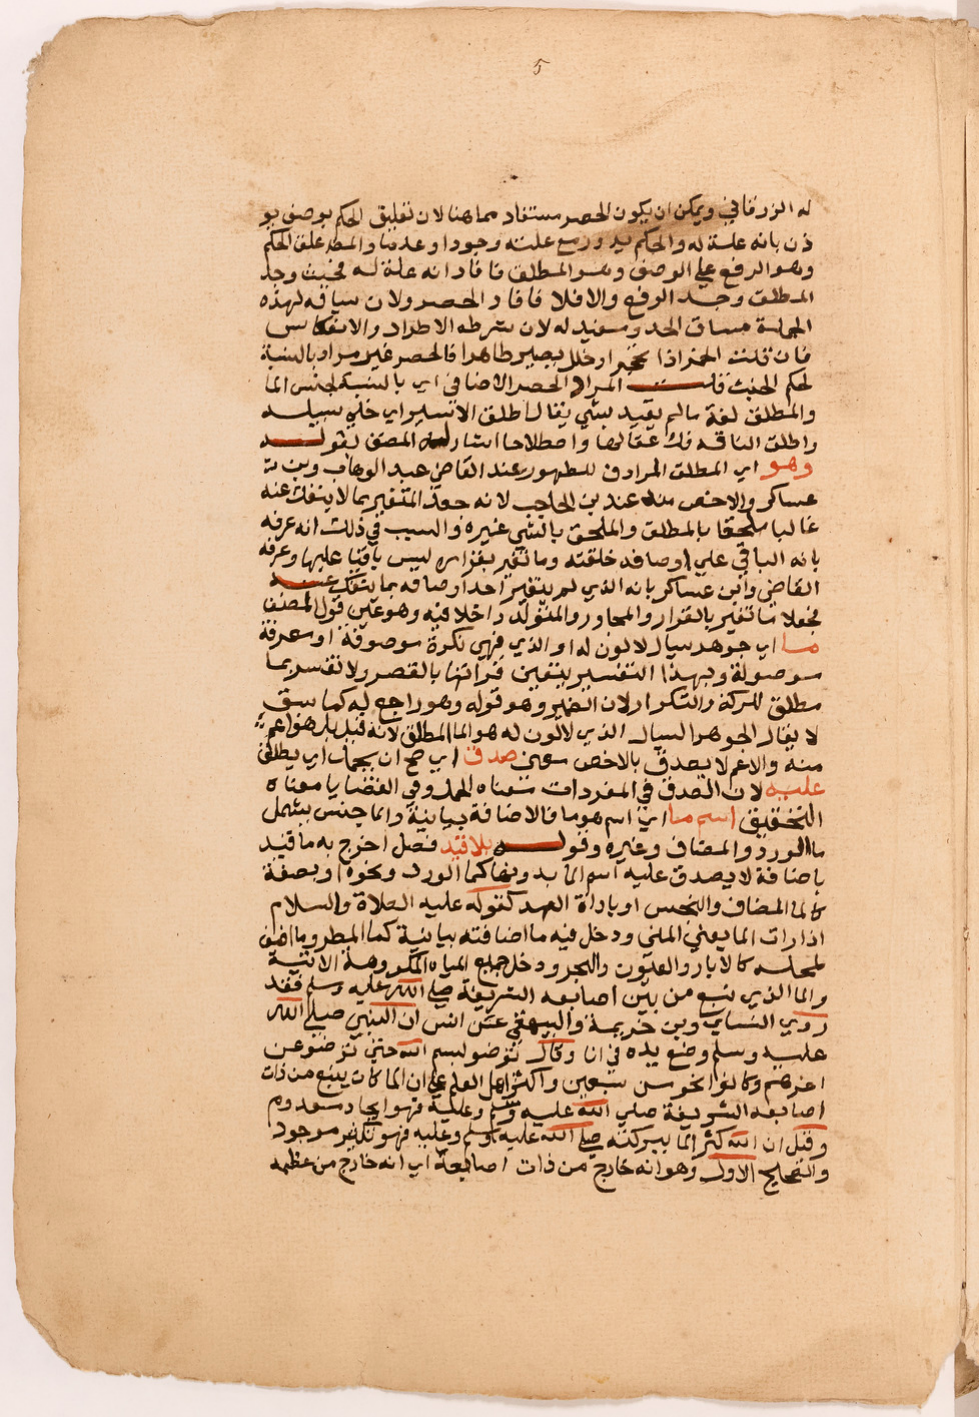 5
له الزرقاني ويمكن ان يكون الحصر مستفاد مماهنا لان تعليق الحكم بوصف يو
ذن بانه علة له والحكم يدور مع علته وجودا وعدما والمص علق الحكم
وهو الرفع علي الوصف وهو المطلق فافاد انه علة له فحيث وجد
المطلق وجد الرفع والا فلا فافاد الحصر ولان سياقه لهذه
الجملة مساق الحد ومفيد له لان شرطه الاطراد والانعكاس
فان قلت الخمر اذا تحجر او خلل يصير طاهرا فالحصر غير مراد بالنسبة
لحكم الخبث قلت المراد الحصر الاضافي اي بالنسبة لجنس الما
والمطلق لغة مالم يقيد بشي يقال اطلق الاسير اي خلي سبيله
واطلق الناقه فك عقالها واصطلاحا اشار له المصق بقوله
وهو اي المطلق المرادف للطهور عند القاضي عبد الوهاب وبن
عساكر والاخص منه عند بن الحاجب لانه جعل المتغير بما لا ينفك عنه
غالبا ملحقا بالمطلق والملحق بالشي غيره والسبب في ذلك انه عرفه
بانه الباقي علي اوصافه خلقته وما تغير بقراره ليس باقيا عليها وعرفه
القاضي وابن عساكر بانه الذي لم يتغير احد اوصافه بما ينفك عنه
فجعلا ما تغير بالقرار والمجاور والمتولد داخلا فيه وهو عين قول المصنف
ما اي جوهر سيال لا لون له او الذي فهي نكرة موصوفة او معرفة
موصولة وبهذا التفسير يتعين قراتها بالقصر ولا تفسر بما
مطلق للركة والتكرار لان الضمير وهو قوله وهو راجع له كما سبق
لا يقال الجوهر السيال الذي لا لون له هو الما المطلق لانه قيل بل هو اعم
منه والاعم لا يصدق بالاخص معني صدق اي صح ان يحمل اي يطلق
عليه لان الصدق في المفردات معناه الحمل وفي القضايا معناه
التحقيق اسم ما اي اسم هو ما فالاضافة بيانية والما جنس يشمل
ما الورد والمضاف وغيره وقوله بلا قيد فصل اخرج به ما قيد
باضافة لا يصدق عليه اسم الما بدونها كما الورد ونحوه او بصفة
كالما المضاف والنجس او باداة العهد كقوله عليه الصلاة والسلام
اذا رات الما يعني المني ودخل فيه ما اضافته بيانية كما المطر وما اضيف
لمحله كالابار والعيون والبحر ودخل جميع المياه المكروهة الاتية
والما الذي نبع من بين اصابعه الشريفة صلي الله عليه وسلم فقد
روي النساي وبن خزيمة والبيهقي عن انس ان النبي صلي الله
عليه وسلم وضع يده في انا وقال توضو بسم الله حتي توضو عن
اخرهم وكانوا نحو من سبعين واكثر اهل العلم علي ان الما كان ينبع من ذات
اصابعه الشريفة صلي الله عليه وسلم وعليه فهو ايجاد معدوم
وقيل ان الله كثر الما ببركته صلي الله عليه وسلم وعليه فهو تكثير موجود
والصحيح الاول وهو انه خارج من ذات اصابعه اي انه خارج من عظمه